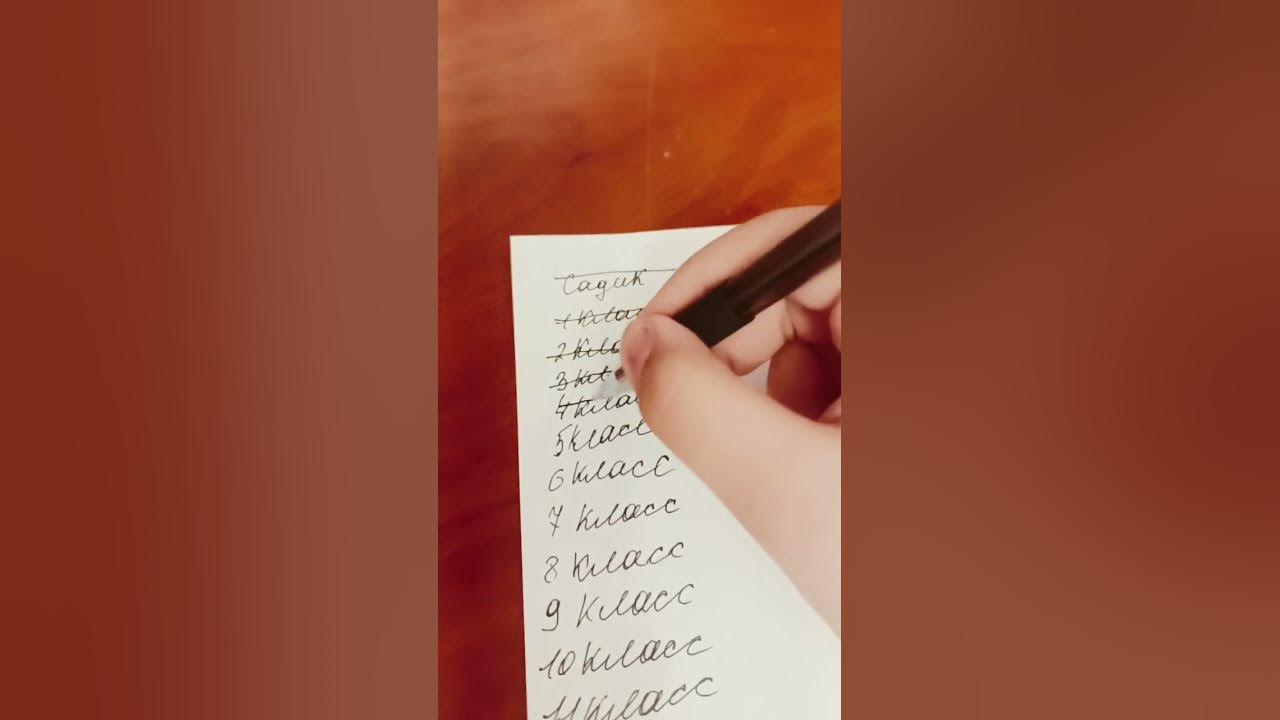 Садик
1 Клас
2 Кла
3 Кл
4 Клас
5 Класс
6 Класс
7 Класс
8 Класс
9 Класс
10 Класс
11 Класс